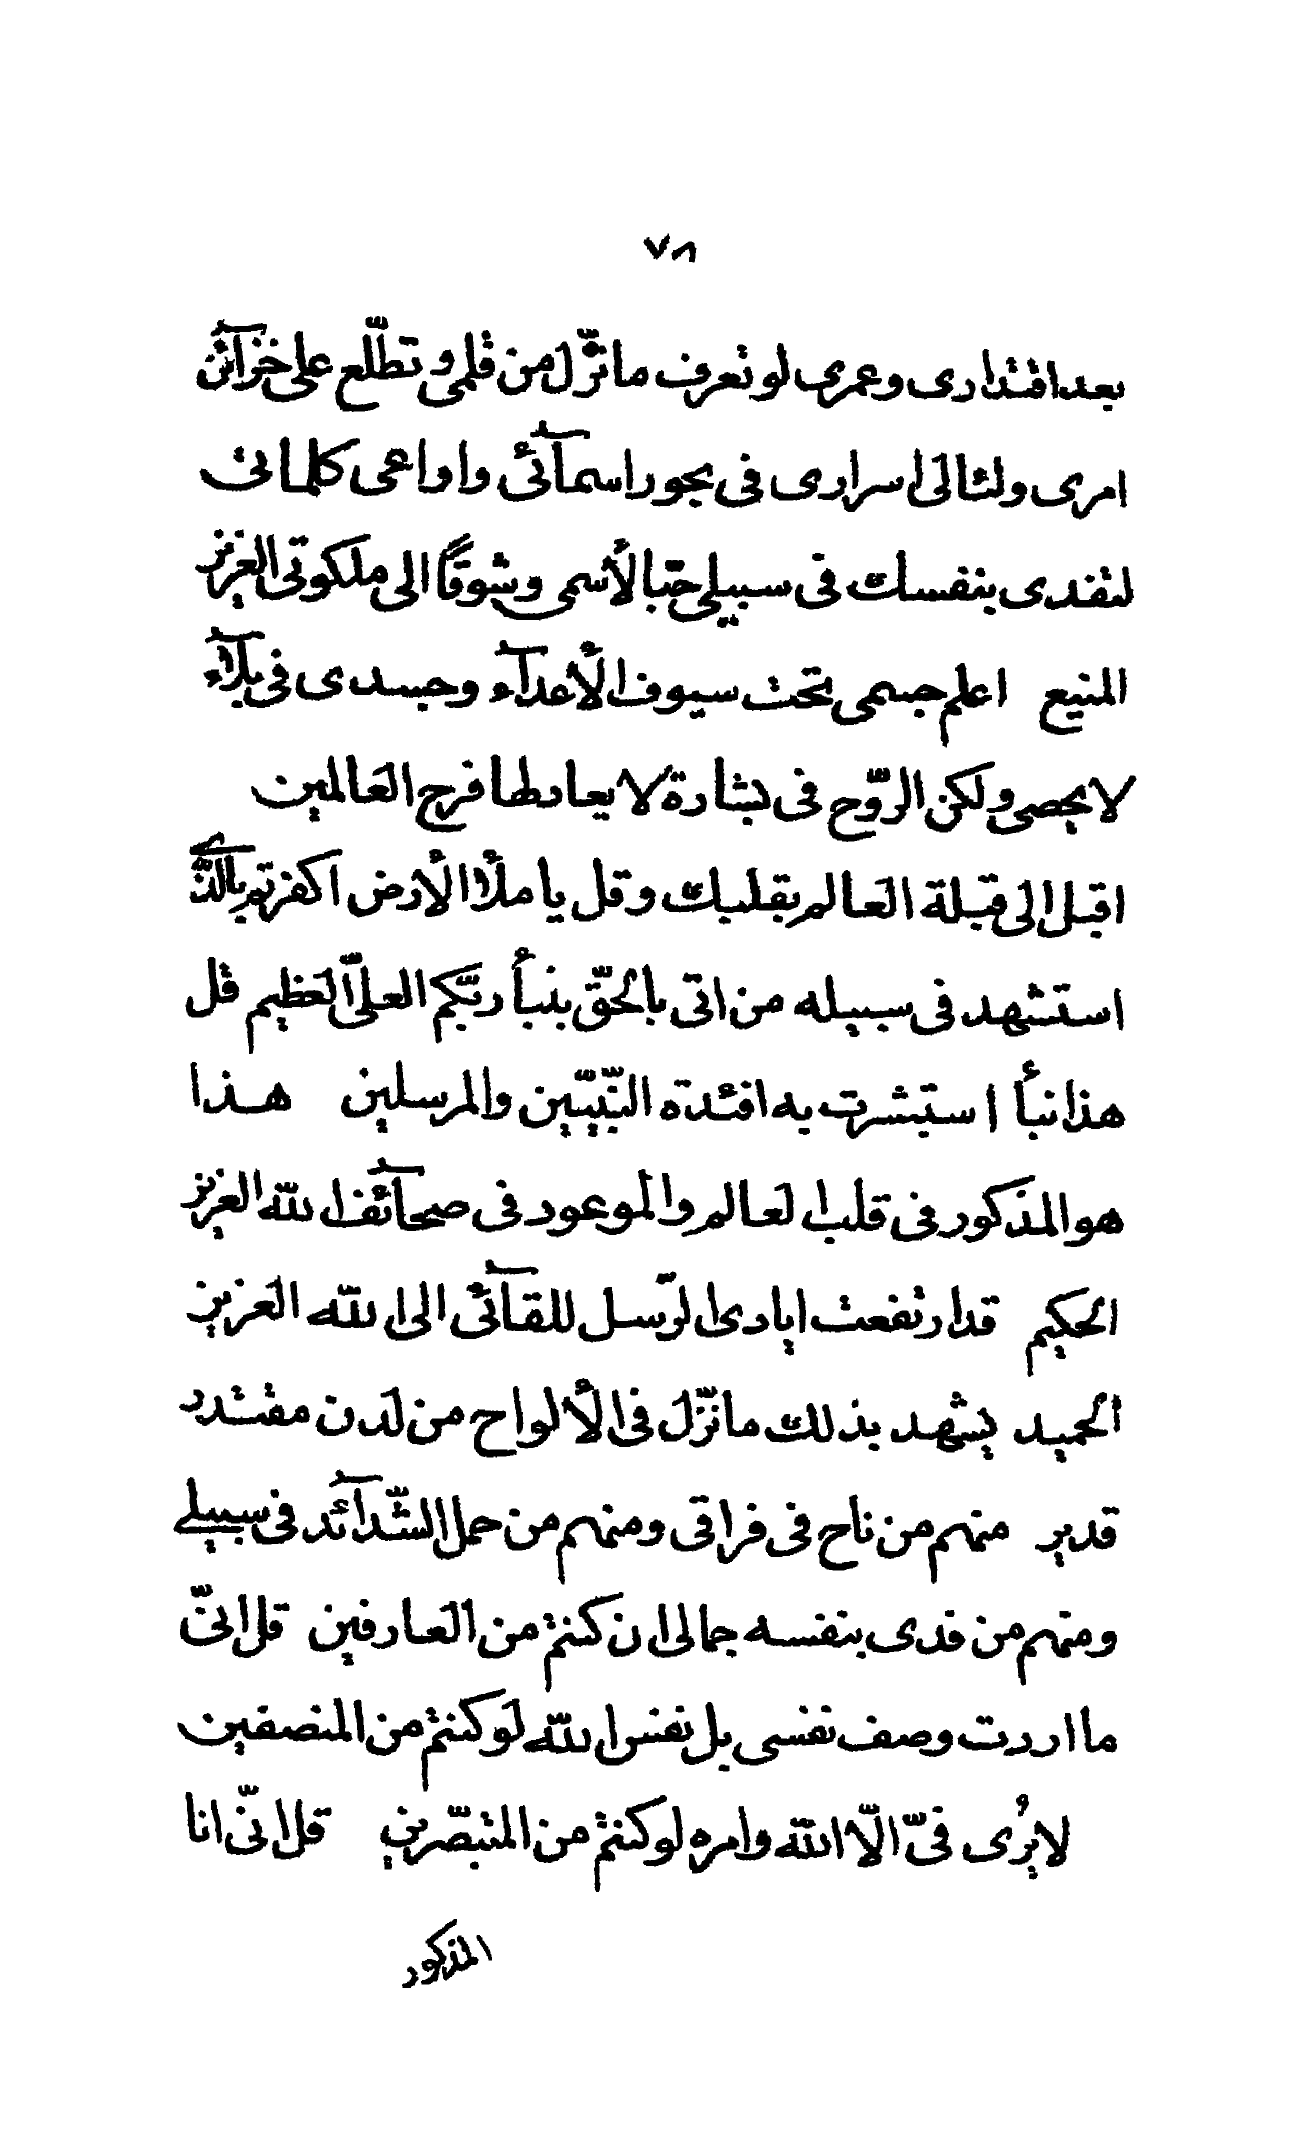 ٧٨
بعد اقتداری وعمری لو تعرف ما نزّل من قلمی و تطلّع علی خزآئن
امری ولئالی اسراری فی بحور اسمآئی واواعی کلماتی
لتفدی بنفسك فی سبیلی حبّا لأسمی وشوقًا الی ملکوتی العزیز
المنیع اعلم جسمی تحت سیوف الأعدآء وجسدی فی بلآء
لا یحصی ولکن الرّوح فی بشارة لا یعادلها فرح العالمین
اقبل الی قبلة العالم بقلبك وقل یا ملأ الأرض اکفرتم بالّذی
استشهد فی سبیله من اتی بالحقّ بنبأ ربّکم العلیّ العظیم قل
هذا نبأ استبشرت به افئدة النّبیّین والمرسلین هذا
هو المذکور فی قلب العالم والموعود فی صحآئف الله العزیز
الحکیم قد ارتفعت ایادی الرّسل للقآئی الی الله العزیز
الحمید یشهد بذلك ما نزّل فی الألواح من لدن مقتدر
قدیر منهم من ناح فی فراقی ومنهم من حمل الشّدآئد فی سبیلی
ومنهم من فدی بنفسه جمالی ان کنتم من العارفین قل انّی
ما اردت وصف نفسی بل نفس الله لو کنتم من المنصفین
لا یُری فیّ الّا الله وامره لو کنتم من المتبصّرین قل انّی انا
المذکور